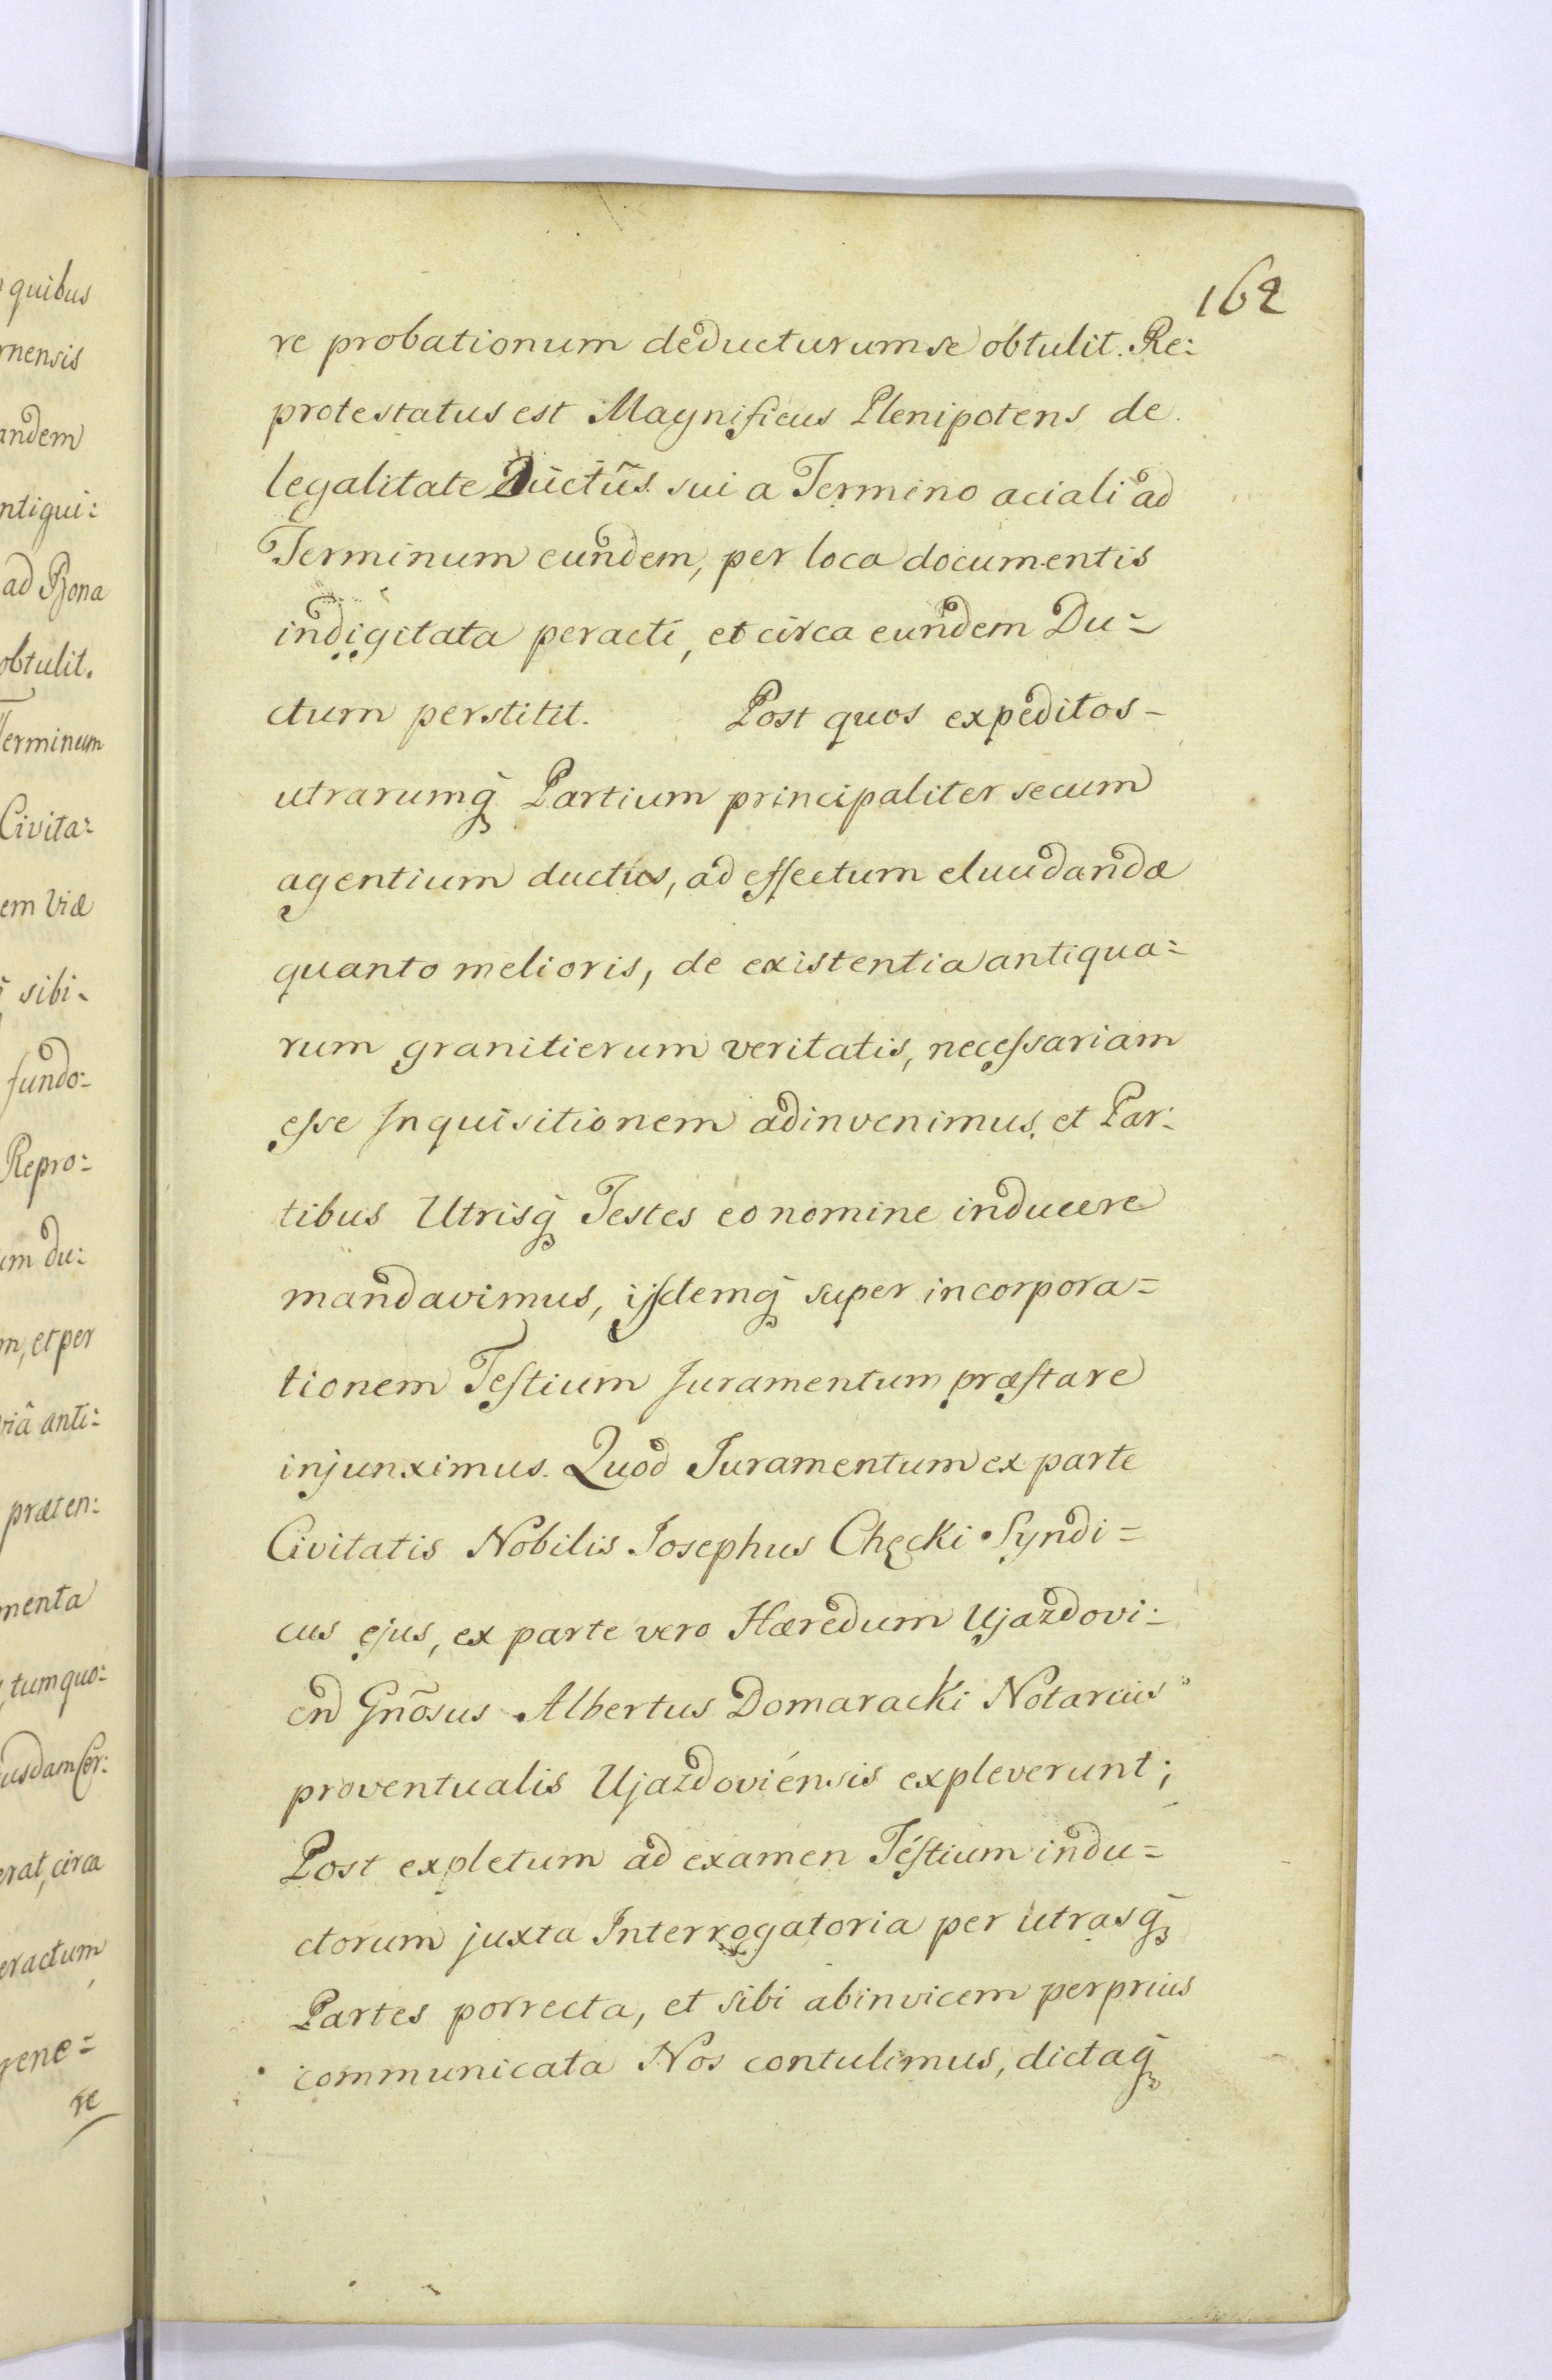 quibus
rnensis
andem
ntiqui:
ad Bona
obtulit.
Terminum
Civita:
em viæ
sibi
fundo:
Repro:
um du:
m, et per
viâ anti:
præten:
menta
, tum quo:
usdam Cer:
erat, circa
eractum
gene=
re
162
re probationum deducturum se obtulit. Re:
protestatus est Magnificus Plenipotens de
legalitate Ductûs sui a Termino aciali ad
Terminum eundem, per loca documentis
indigitata peracti, et circa eundem Du=
ctum perstitit. Post quos expeditos-
utrarumq̃ Partium principaliter secum
agentium ductus, ad effectum elucidandæ
quanto melioris, de existentia antiqua=
rum granitierum veritatis, necessariam
esse Inquisitionem adinvenimus, et Par:
tibus Utrisq̃ Testes eo nomine inducere
mandavimus, ijsdemq̃ super incorpora=
tionem Testium Juramentum præstare
injunximus. Quod Juramentum ex parte
Civitatis Nobilis Josephus Chęcki Syndi=
cus ejus, ex parte vero Hæredum Ujazdovi:
en Gnõsus Albertus Domaracki Notarius
proventualis Ujazdoviensis expleverunt;
Post expletum ad examen Testium indu=
ctorum juxta Interrogatoria per utrasq̃
Partes porrecta, et sibi abinvicem perprius
communicata Nos contulimus, dictaq̃